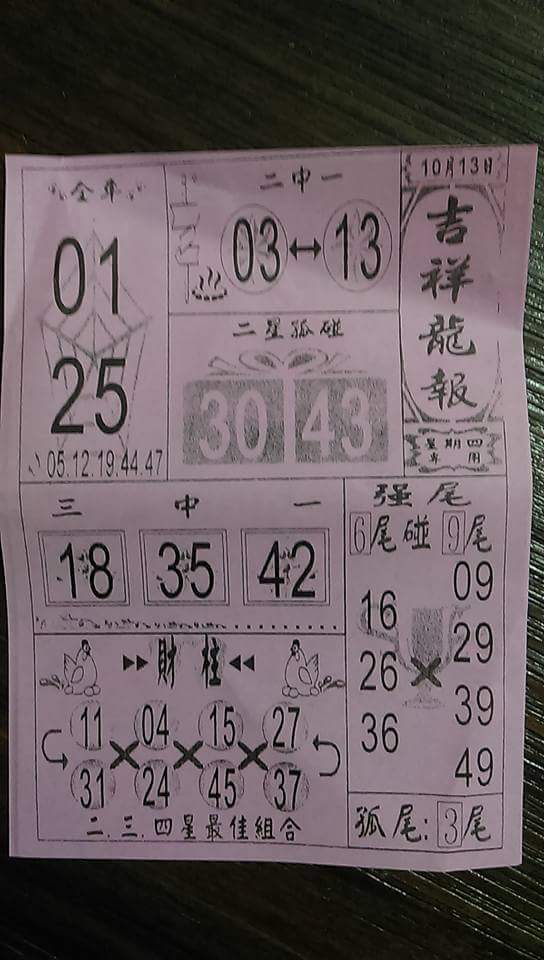 10月13日
吉祥龍報
星期四
專用
全車
01
25
05.12.19.44.47
二中一
03↔13
二星孤碰
30 43
三中一
18 35 42
强尾
6尾碰9尾
09
16
29
26×
39
36
49
孤尾:3尾
▸▸財柱◂◂
11 04 15 27
× × ×
31 24 45 37
二.三.四星最佳組合